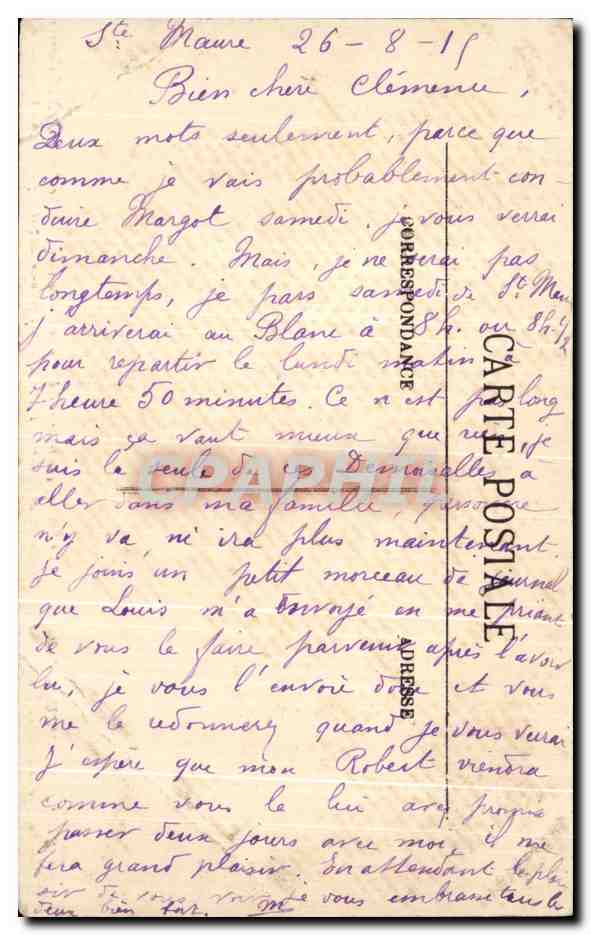 Ste Maure 26-8-15
Bien chère Clémence,
Deux mots seulement, parce que
comme je vais probablement con-
duire Margot samedi, je vous verrai
dimanche. Mais, je ne serai pas
longtemps, je pars samedi de Ste Mau
j'arriverai au Blanc à 8h. ou 8h.1/2
pour repartir le lundi matin à
7 heure 50 minutes. Ce n'est pas long
mais ça vaut mieux que rien, je
suis la seule de ces Demoiselles à
aller dans ma famille, personne
n'y va ni ira plus maintenant.
Je joins un petit morceau de journal
que Louis m'a envoyé en me priant
de vous le faire parvenir après l'avoir
lu, je vous l'envoie donc et vous
me le redonnerez quand je vous verrai
J'espère que mon Robert viendra
comme vous le lui avez promis
passer deux jours avec moi, il me
fera grand plaisir. En attendant le plai
sir de vous voir je vous embrasse tous les
deux bien fort. M
CARTE POSTALE
CORRESPONDANCE
ADRESSE
CPAPHIL